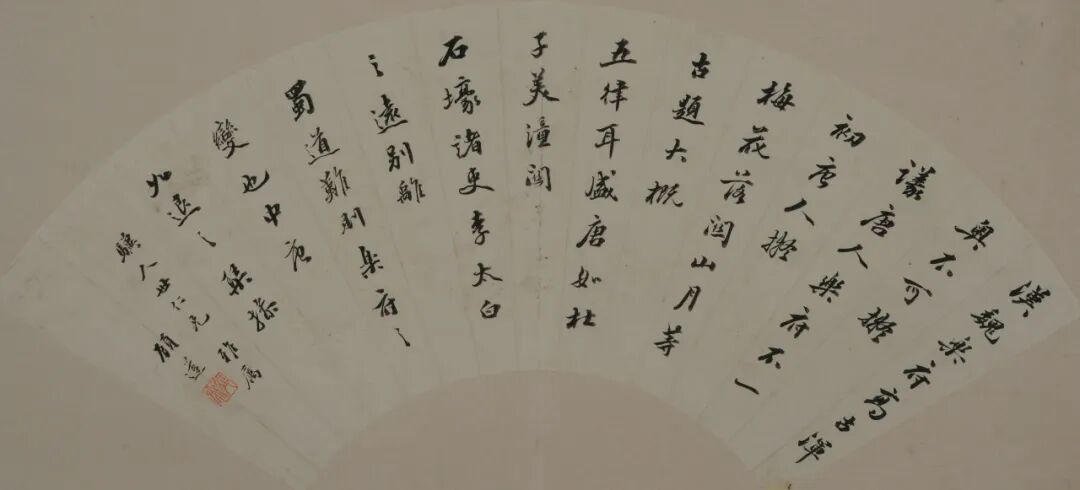 漢魏樂府高古渾
奥不可擬
議唐人樂府不一
初唐人擬
梅花落關山月等
古題大概
五律耳盛唐如杜
子美潼關
石壕諸吏李太白
之遠別離
蜀道難則樂府之
變也中唐
如退之琴操
人世仁兄雅屬
顧蓮